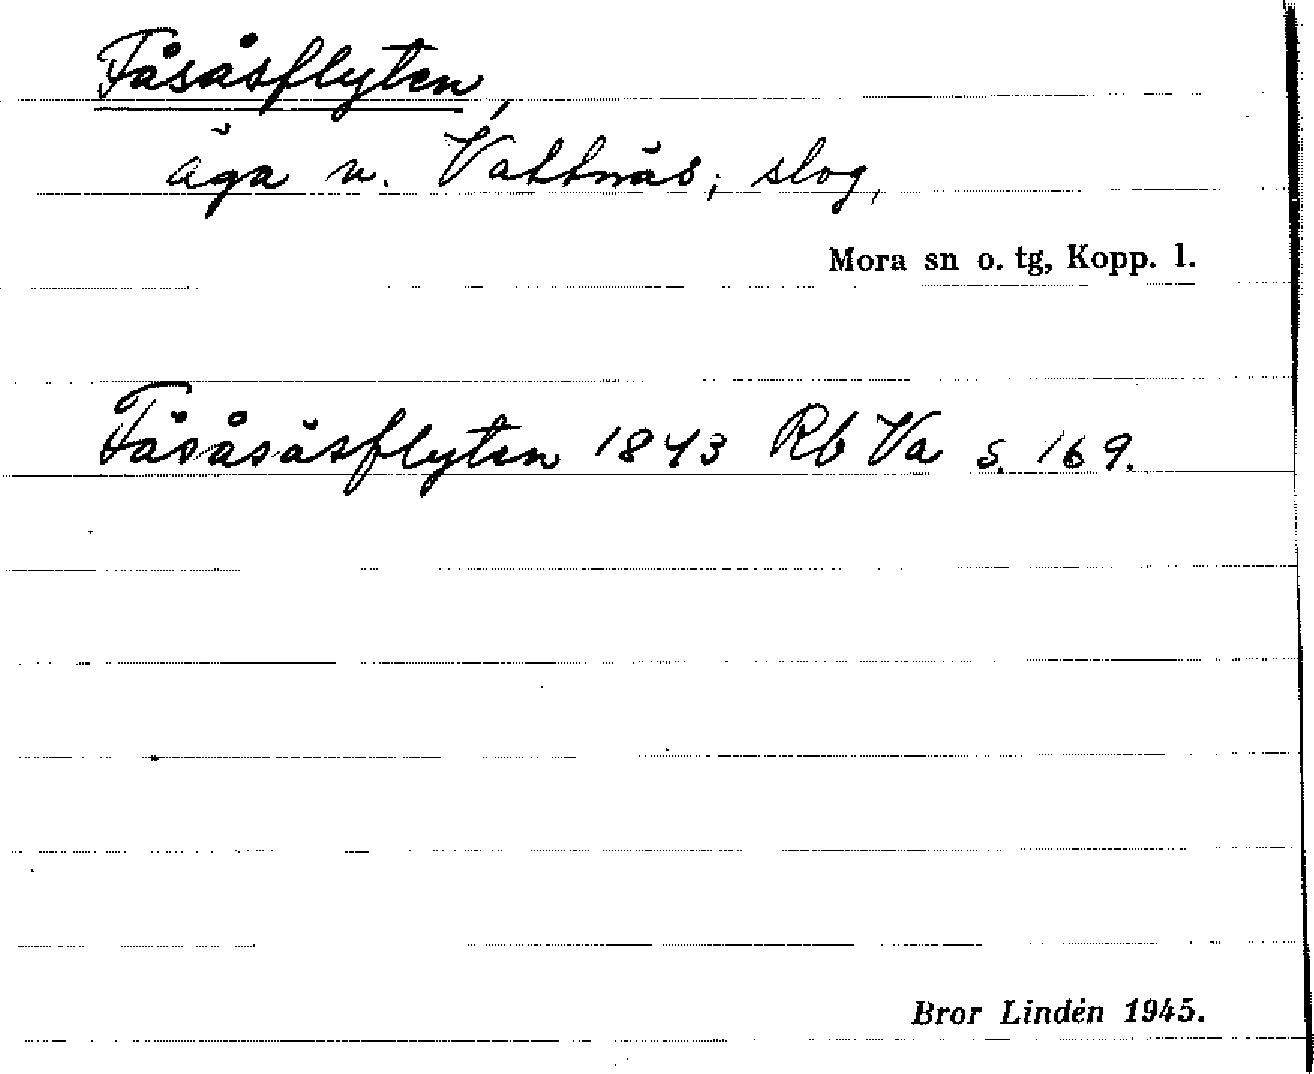 Fåsåsflyten,
äga u. Vattnäs; slog,
Mora sn o. tg, Kopp. l.
Fåsåsåsflyten 1843 Rb Va s. 169.
Bror Lindén 1945.